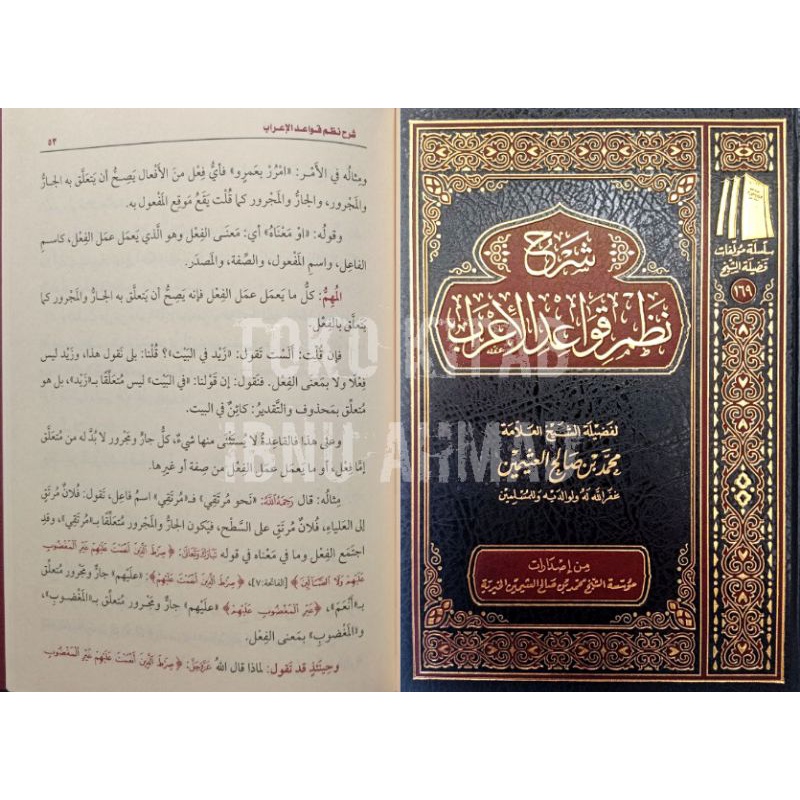 شرح نظم قواعد الإعراب
٥٣
ومِثالُه في الأَمْرِ: «امْرُرْ بِعَمرٍو» فأيُّ فِعْل منَ الأفْعال يَصِحُّ أن يَتعلَّق به الجارُّ
والمَجْرور، والجارُّ والمَجْرور كما قُلْت يَقَع مَوقِع المَفْعول به.
وقولُه: «اوْ مَعْنَاهُ» أي: مَعنَى الفِعْل وهو الَّذي يَعمَل عمَل الفِعْل، كاسمِ
الفاعِل، واسمِ المَفْعول، والصِّفة، والمَصدَر.
المُهِمُّ: كلُّ ما يَعمَل عمَل الفِعْل فإنه يَصِحُّ أن يَتعلَّق به الجارُّ والمَجْرور كما
يَتعلَّق بالفِعْل.
فإن قُلْتَ: أَلَسْت تَقول: «زَيْد في البَيْت»؟ قُلْنا: بلى نَقول هذا، وزَيْد ليس
فِعْلًا ولا بمَعنَى الفِعْل. فنَقول: إن قَوْلنا: «في البَيْت» ليس مُتعلِّقًا بـ«زَيْد»، بل هو
مُتعلِّق بمَحذوف والتَّقديرُ: كائِنٌ في البيت.
وعلى هذا فالقاعِدةُ لا يُستَثْنَى منها شيءٌ، كلُّ جارٍّ ومَجْرور لا بُدَّ له من مُتعلَّق
إمَّا فِعْل، أو ما يَعمَل عمَل الفِعْل من صِفة أو غيرِها.
مِثالُه: قال رَحِمَهُ اللَّهُ: «نَحو مُرتَقِي» فـ«مُرتَقِي» اسمُ فاعِل، تَقول: فُلانٌ مُرتَقٍ
إلى العَلياءِ، فُلانٌ مُرتَقٍ على السَّطْح، فيَكون الجارُّ والمَجْرور مُتعلِّقًا بـ«مُرتَقٍ»، وقَدِ
اجتَمَع الفِعْل وما في مَعْناه في قوله تَبَارَكَ وَتَعَالَى: ﴿صِرَٰطَ ٱلَّذِينَ أَنْعَمْتَ عَلَيْهِمْ غَيْرِ ٱلْمَغْضُوبِ
عَلَيْهِمْ وَلَا ٱلضَّآلِّينَ﴾ [الفاتحة:٧]، ﴿صِرَٰطَ ٱلَّذِينَ أَنْعَمْتَ عَلَيْهِمْ﴾: «عليهم» جارٌّ ومَجْرور مُتعلِّق
بـ«أَنْعَمَ»، ﴿غَيْرِ ٱلْمَغْضُوبِ عَلَيْهِمْ﴾ «عليْهم» جارٌّ ومَجْرور مُتعلِّق بـ«المَغْضوبِ»،
و«المَغْضوبِ» بمَعنَى الفِعْل.
وحِينَئِذٍ قد تَقول: لماذا قال اللهُ عَزَّوَجَلَّ: ﴿صِرَٰطَ ٱلَّذِينَ أَنْعَمْتَ عَلَيْهِمْ غَيْرِ ٱلْمَغْضُوبِ
سلسلة مؤلفات
فضيلة الشيخ
١٦٩
شرح
نظم قواعد الإعراب
لفضيلة الشيخ العلامة
محمد بن صالح العثيمين
غفر الله له ولوالديه وللمسلمين
من إصدارات
مؤسسة الشيخ محمد بن صالح العثيمين الخيرية
TOKO KITAB
IBNU AHMAD